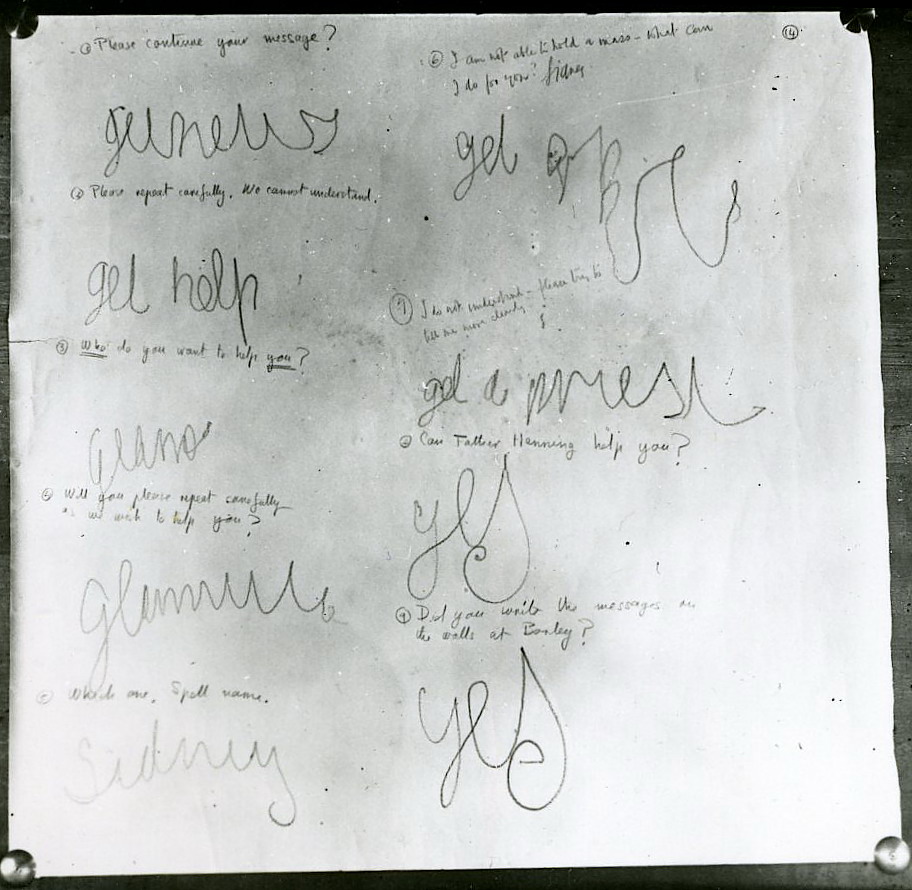 ① Please continue your message?
② Please repeat carefully. We cannot understand.
get help
③ Who do you want to help you?
④ Will you please repeat carefully
as we wish to help you?
⑤ Which one. Spell name.
Sidney
⑭
⑥ I am not able to hold a mass - what can
I do for you? Sidney
get
⑦ I do not understand - please try to
tell me more clearly.
get a priest
⑧ Can Father Henning help you?
yes
⑨ Did you write the messages on
the walls at Borley?
yes